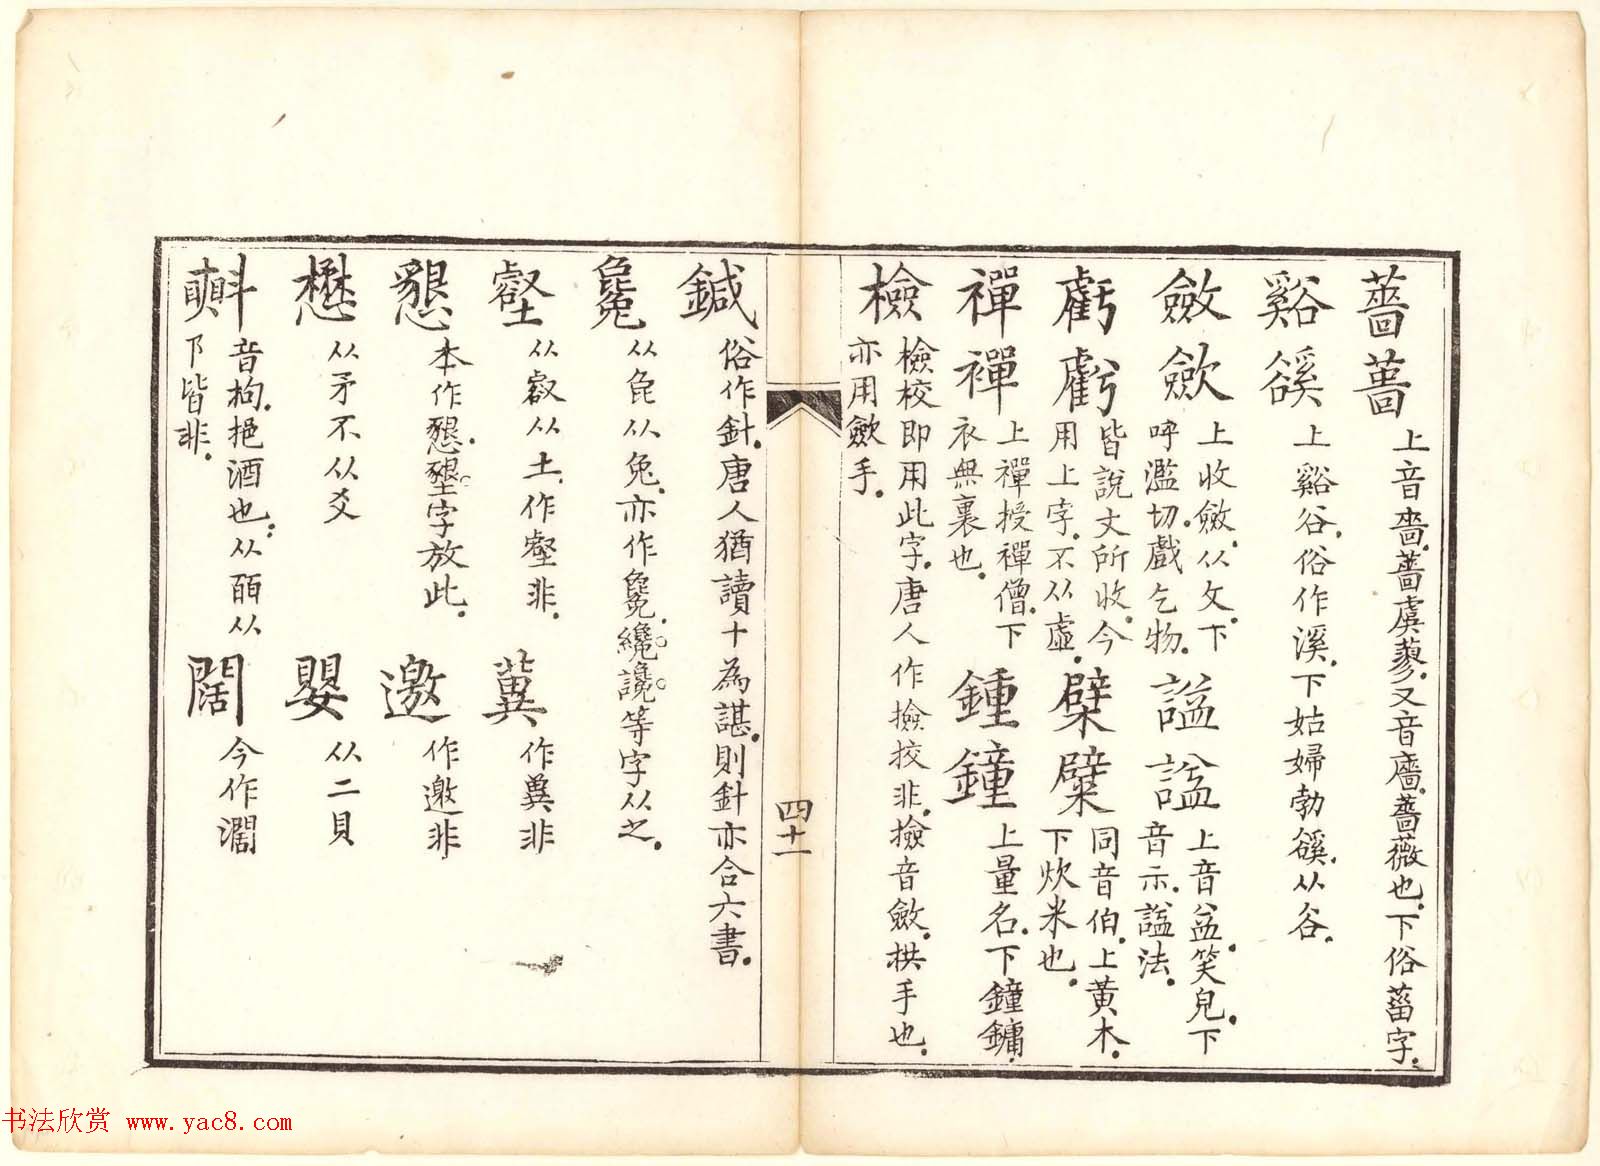 薔薔上音嗇薔虞蓼又音廧薔薇也下俗菑字
谿豀上谿谷俗作溪下姑婦勃豀从谷
斂歛上收斂从攵下呼濫切戲乞物
謚諡上音益笑皃下音示諡法
虧虧皆說文所收今用上字不从虛
檗糪同音伯上黃木下炊米也
禪襌上禪授禪僧下衣無裏也
鍾鐘上量名下鐘鏞
檢檢校即用此字唐人作撿挍非撿音斂拱手也亦用斂手
四十一
鍼俗作針唐人猶讀十為諶則針亦合六書
毚从㲋从兔亦作毚纔讒等字从之
壑从㕡从土作壑非
冀作兾非
懇本作懇墾字放此
邀作邀非
懋从矛不从爻
嬰从二貝
㪺音拘挹酒也从𦣻从卪皆非
闊今作濶
书法欣赏 www.yac8.com